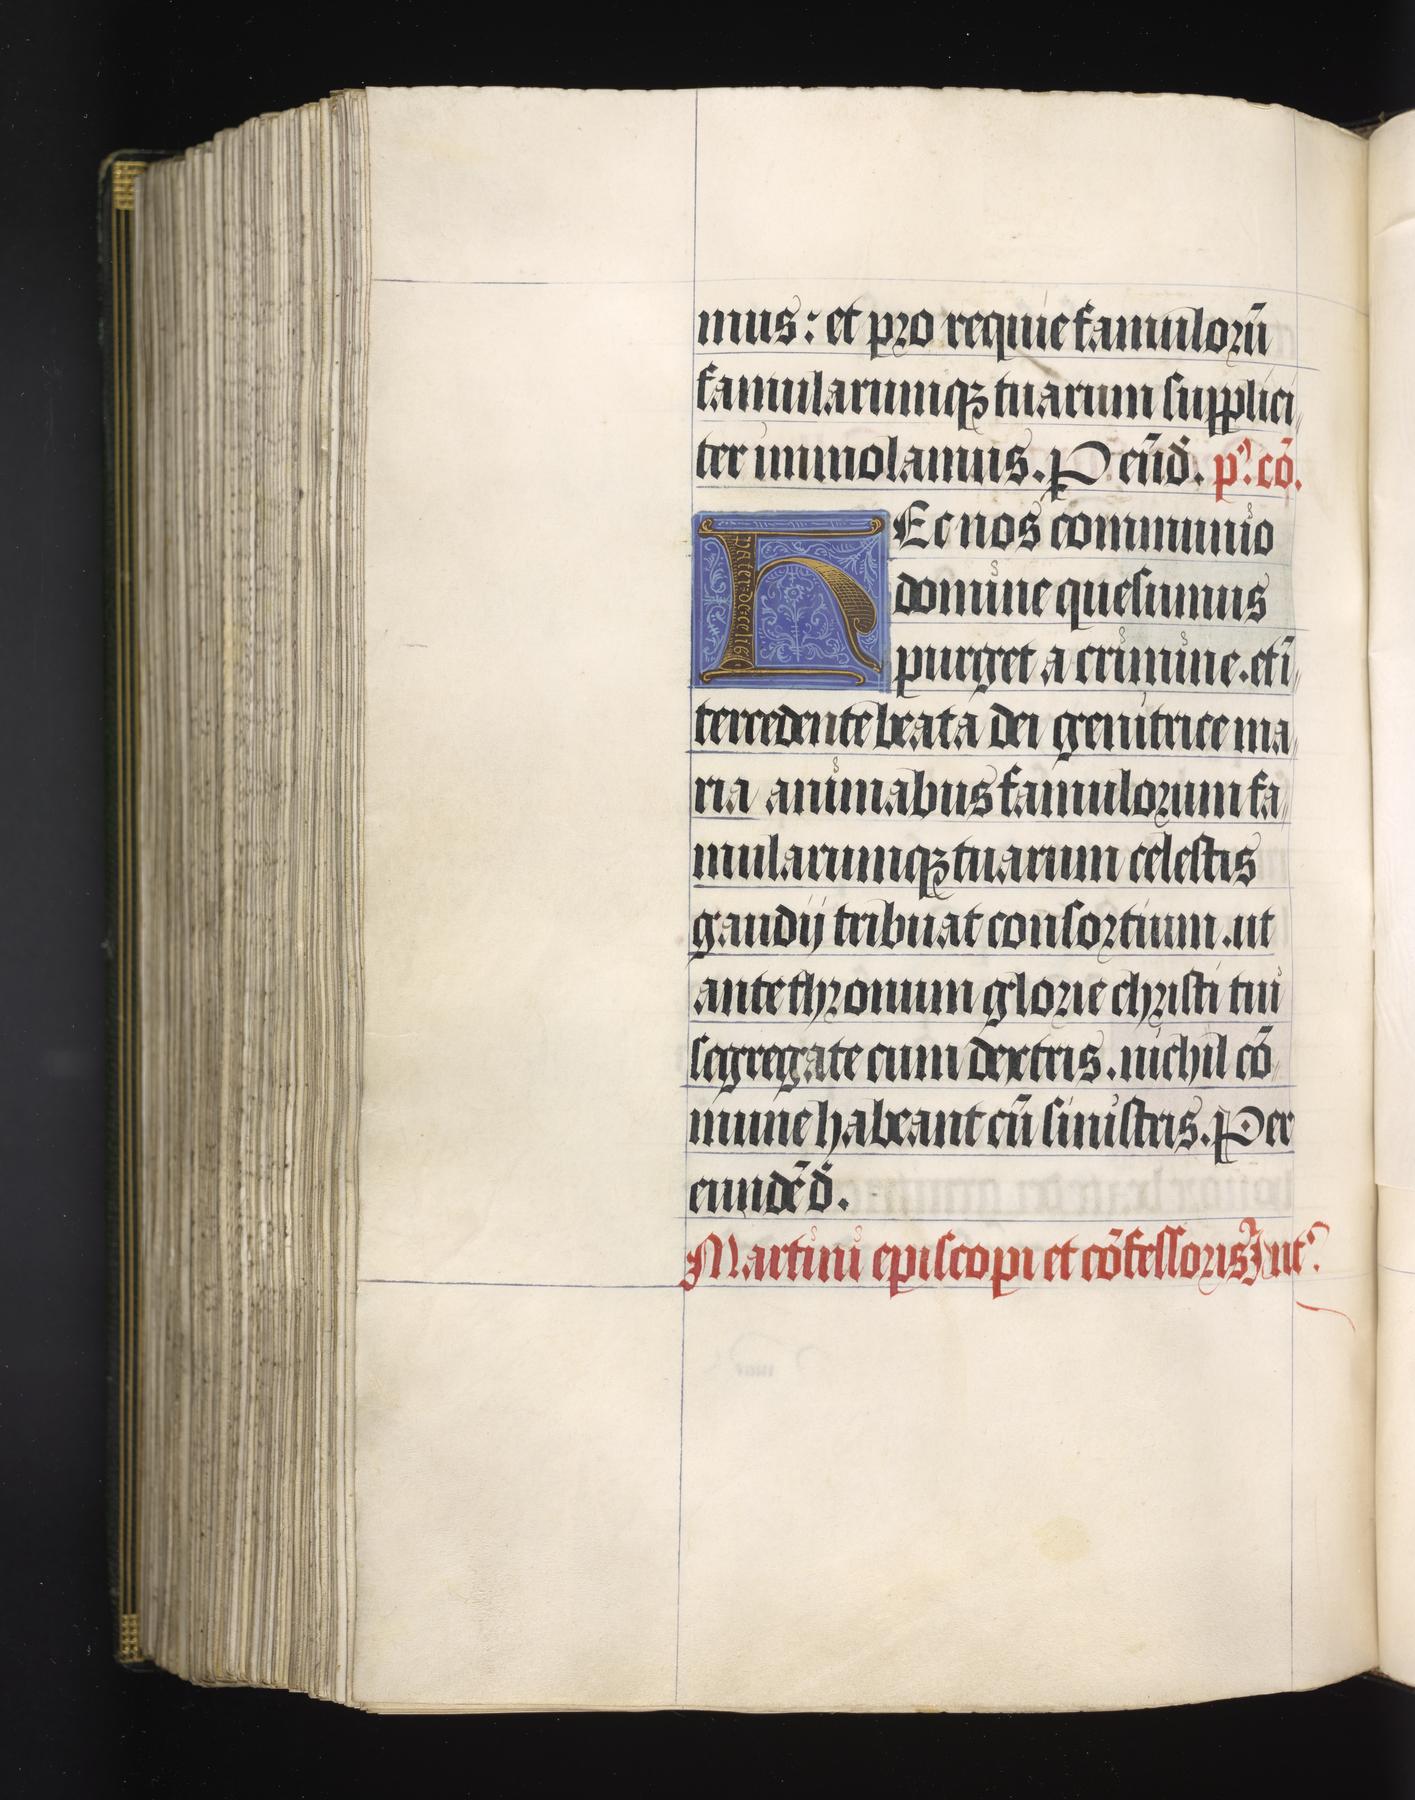 mus: et pro requie famulorū
famularumqꝫ tuarum supplici
ter immolamus. P eūd̄. p̄. cō.
HEc nos communio
domine quesumus
purget a crimine. et ī
tercedente beata dei genitrice ma
ria animabus famulorum fa
mularumqꝫ tuarum celestis
gaudij tribuat consortium. ut
ante thronum glorie christi tui
segregate cum dextris. nichil cō
mune habeant cū sinistris. Per
eundē d̄.
Martini episcopi et cōfessoris Int̄.
pater de celis